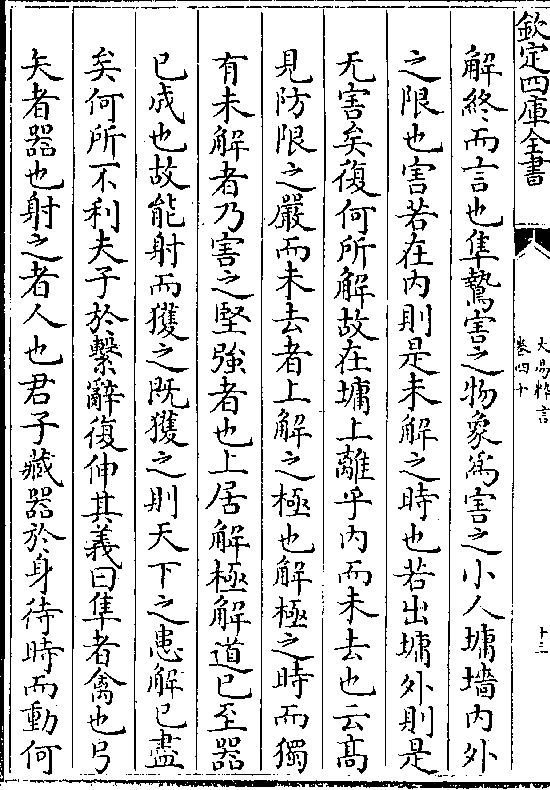 欽定四庫全書
大易粹言
卷四十
十三
解終而言也隼鷙害之物象為害之小人墉墻内外
之限也害若在内則是未解之時也若出墉外則是
无害矣復何所解故在墉上離乎内而未去也云髙
見防限之嚴而未去者上解之極也解極之時而獨
有未解者乃害之堅強者也上居解極解道已至器
已成也故能射而獲之既獲之則天下之患解已盡
矣何所不利夫子於繫辭復伸其義曰隼者禽也弓
矢者器也射之者人也君子藏器於身待時而動何